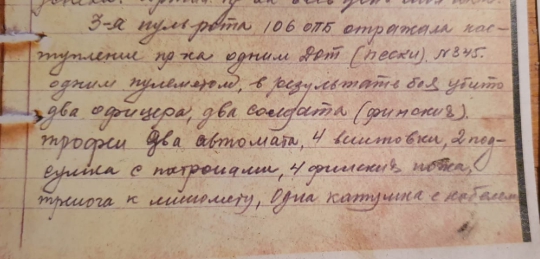 3-я пульрота 106 ОПБ отражала нас-
тупление пр-ка одним Дот (пески). №345.
одним пулеметом, в результате боя убито
два офицера, два солдата (финских).
трофеи два автомата, 4 винтовки, 2 под-
сумка с патронами, 4 финских ножа,
тренога к миномету, одна катушка с кабелем